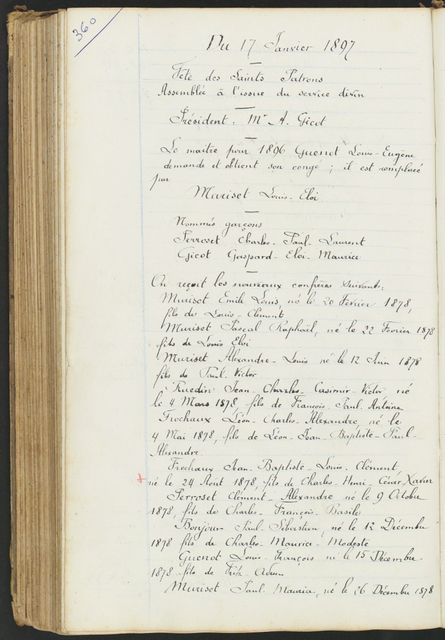 360
Du 17 Janvier 1897
Fête des Saints Patrons
Assemblée à l'issue du service divin
Président : Mr A. Gicot
Le maître pour 1896 Guenot Louis-Eugène
demande et obtient son congé ; il est remplacé
par
Muriset Louis-Eloi
Nommés garçons
Perroset Charles-Paul-Laurent
Gicot Gaspard-Eloi-Maurice
On reçoit les nouveaux confrères suivant:
Muriset Emile Louis, né le 20 février 1878,
fils de Louis-Clément
Muriset Pascal Raphaël, né le 22 Février 1878
fils de Louis Eloi
Muriset Alexandre-Louis né le 12 Juin 1878
fils de Paul-Victor
Ruedin Jean-Charles-Casimir-Victor né
le 4 Mars 1878, fils de François-Paul-Antoine
Frochaux Léon-Charles-Alexandre, né le
4 Mai 1878, fils de Léon-Jean-Baptiste-Paul-
Alexandre
Frochaux Jean-Baptiste-Louis-Clément,
né le 24 Aout 1878, fils de Charles-Henri-César Xavier
Perroset Clément-Alexandre né le 9 Octobre
1878, fils de Charles-François-Basile
Bonjour Paul-Sébastien, né le 12 Décembre
1878 fils de Charles-Maurice-Modeste
Guenot Louis-François né le 15 Décembre
1878 fils de
Muriset Paul-Maurice, né le 26 Décembre 1878